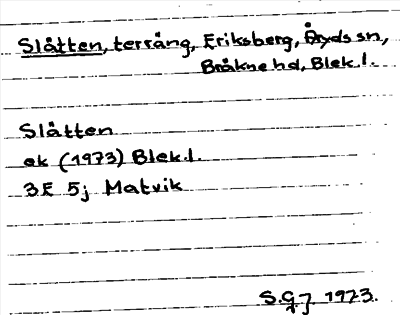 Slåtten, terräng, Eriksberg, Åryds sn,
Bräkne hd, Blek.l.
Slåtten
ek (1973) Blek.l.
3E 5j Matvik
S.G.J. 1973.